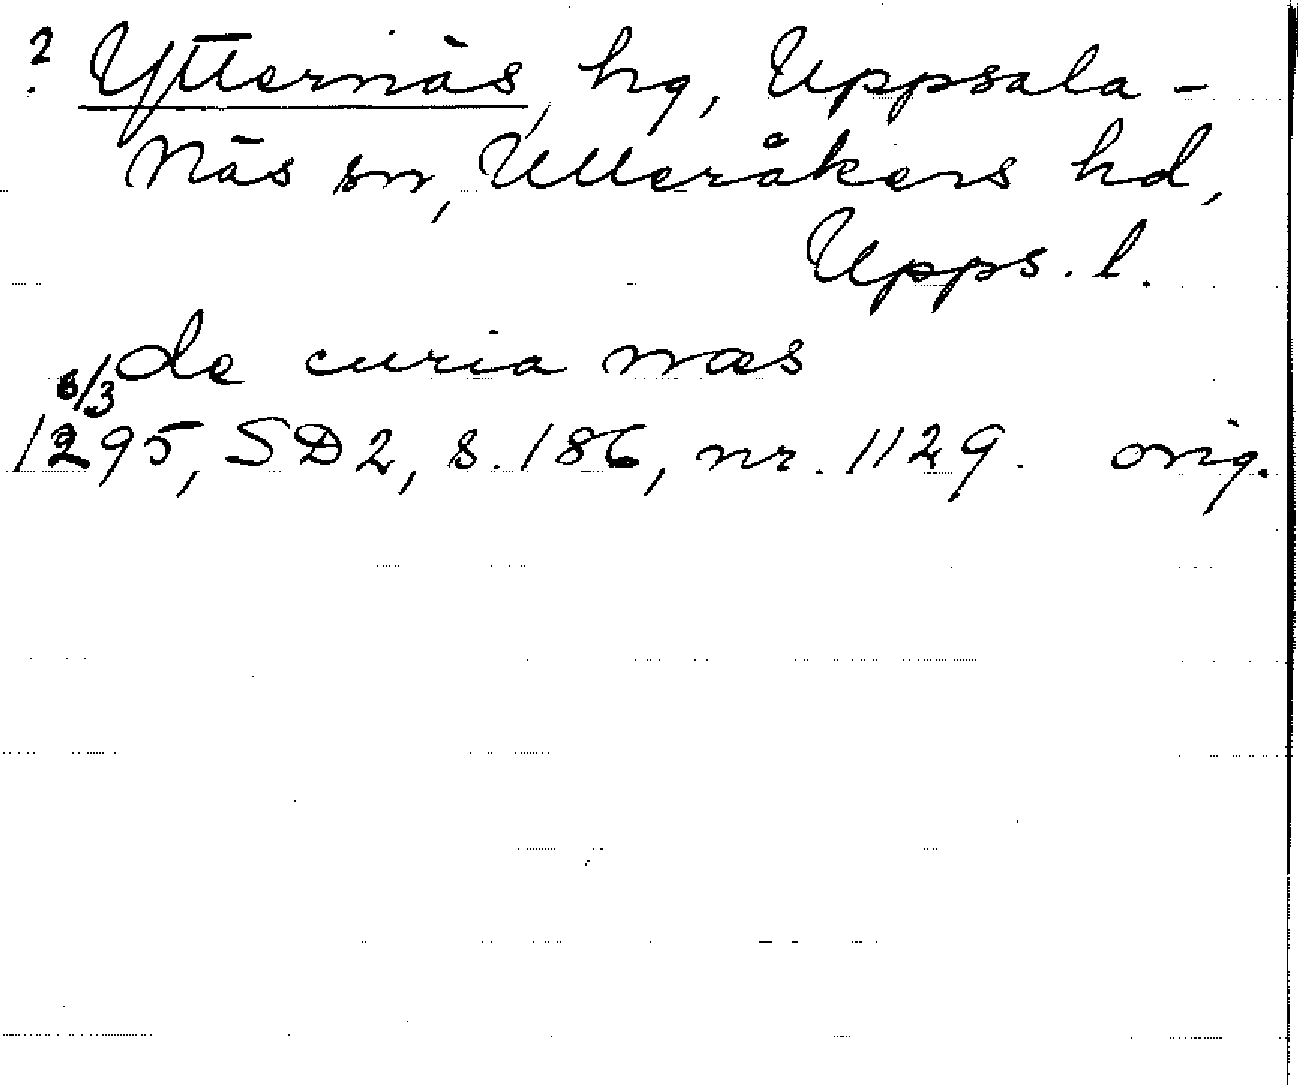 ? Ytternäs, hg, Uppsala-
Näs sn, Ulleråkers hd,
Upps. l.
de curia næs
6/3
1295, SD2, s. 186, nr. 1129. orig.